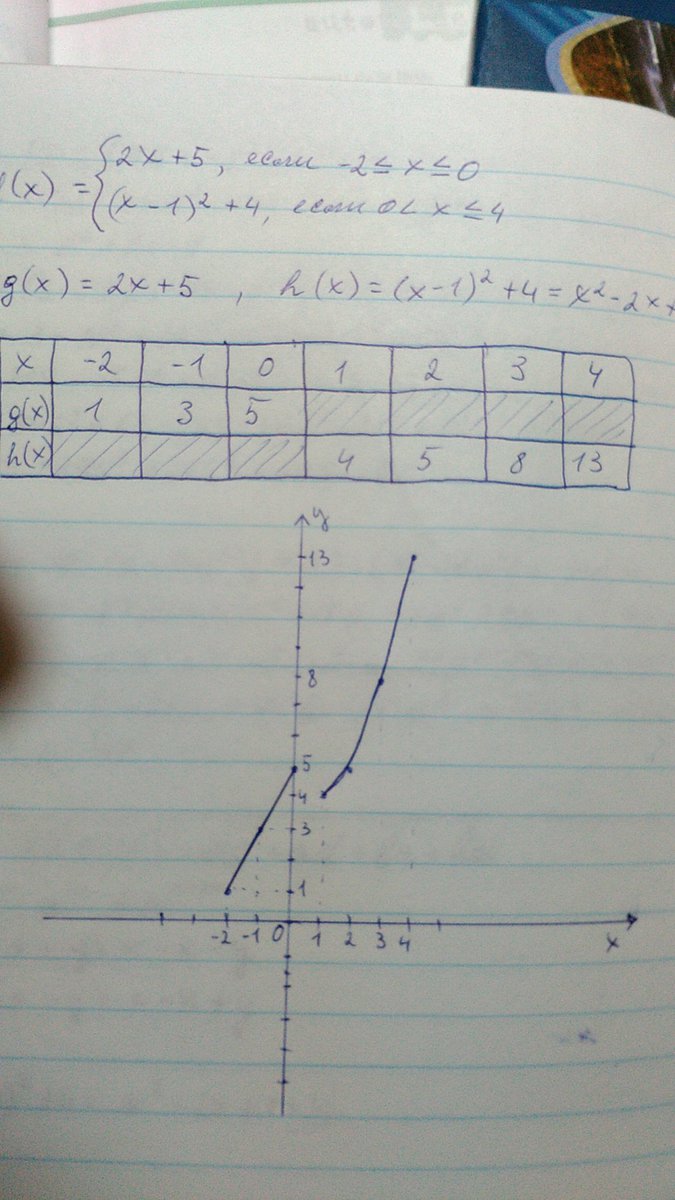 (x) = {2x+5, если -2≤ x ≤0
(x-1)² +4, если 0< x ≤4
g(x) = 2x+5 , h(x) = (x-1)² +4 = x² -2x+
x -2 -1 0 1 2 3 4
g(x) 1 3 5
h(x) 4 5 8 13
y
13
8
5
4
3
1
-2 -1 0 1 2 3 4 x